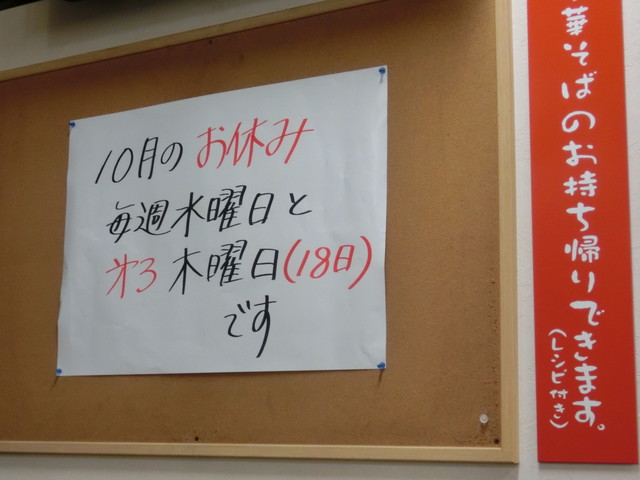 10月のお休み
毎週水曜日と
第3木曜日(18日)
です
華そばのお持ち帰りできます。
(レシピ付き)